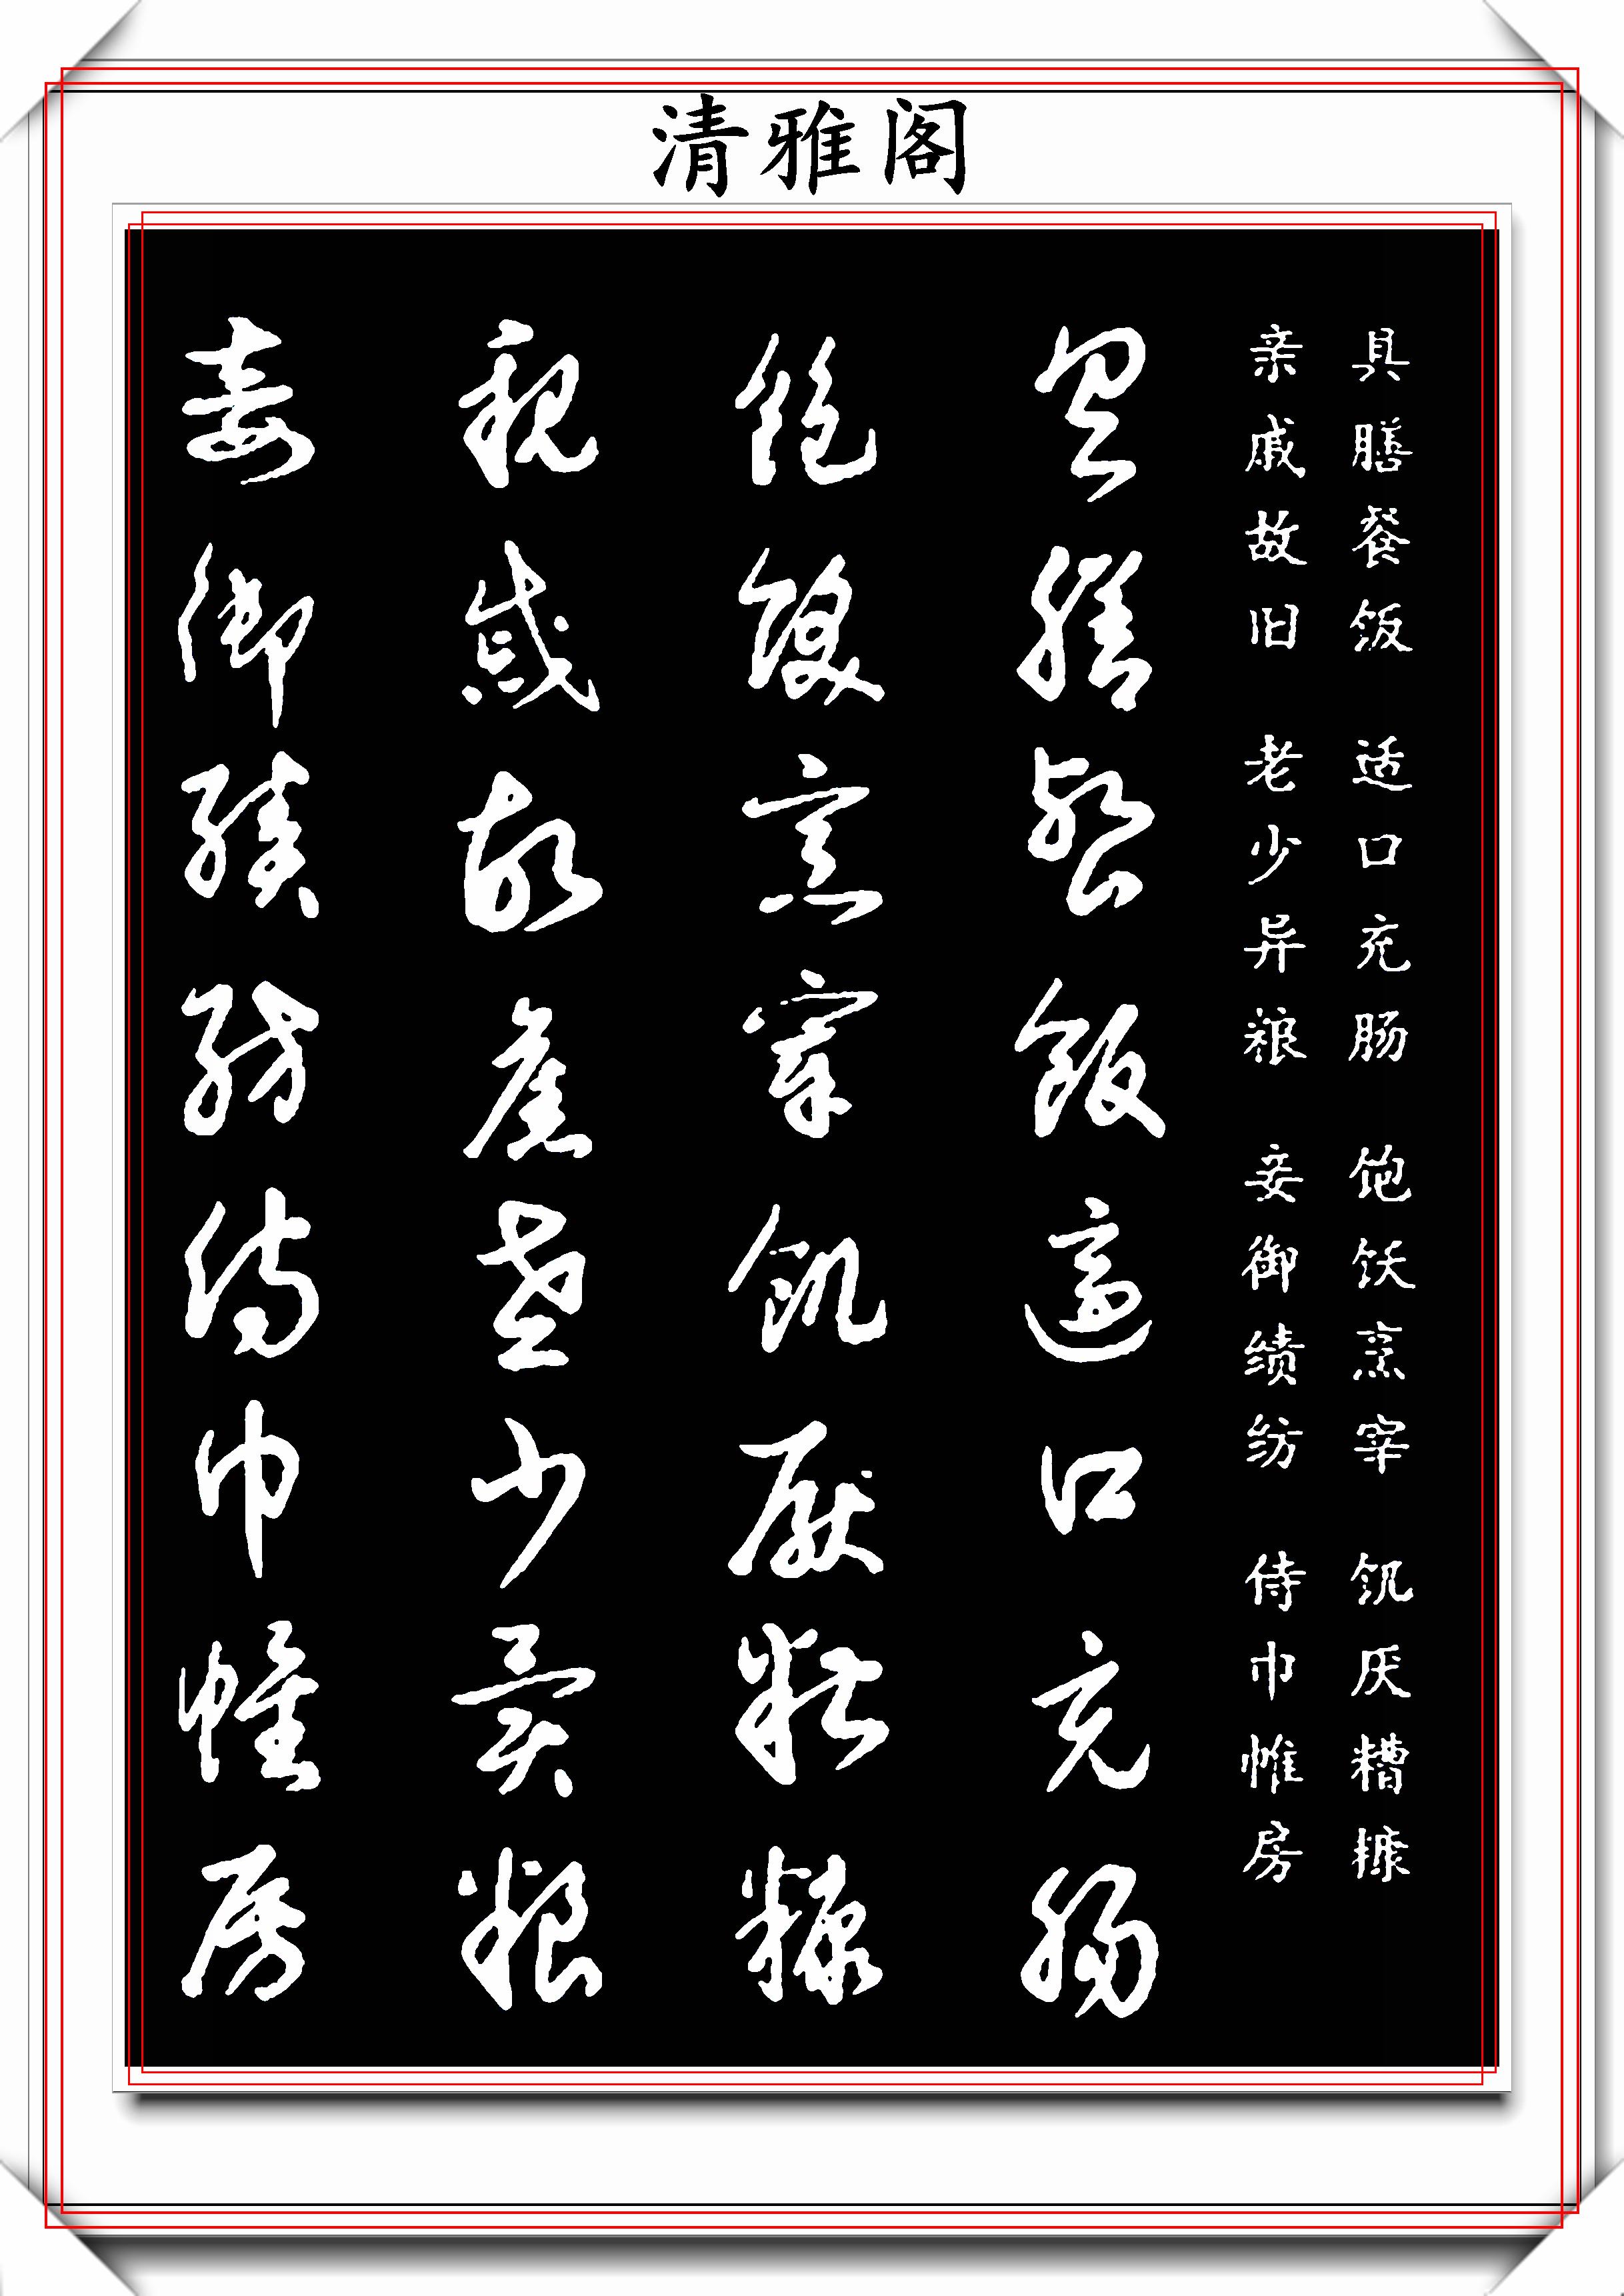 清雅阁
具膳餐饭 适口充肠 饱饫烹宰 饥厌糟糠
亲戚故旧 老少异粮 妾御绩纺 侍巾帷房
具膳餐飯適口充腸
飽飫烹宰飢厭糟糠
親戚故舊老少異粮
妾御績紡侍巾帷房